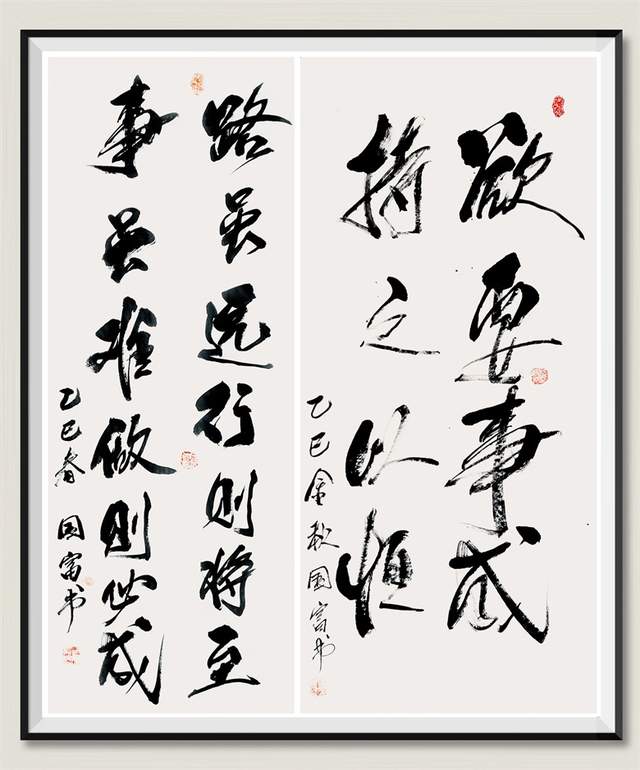 欲要事成
持之以恒
乙巳金秋国富书
路虽远行则将至
事虽难做则必成
乙巳春国富书